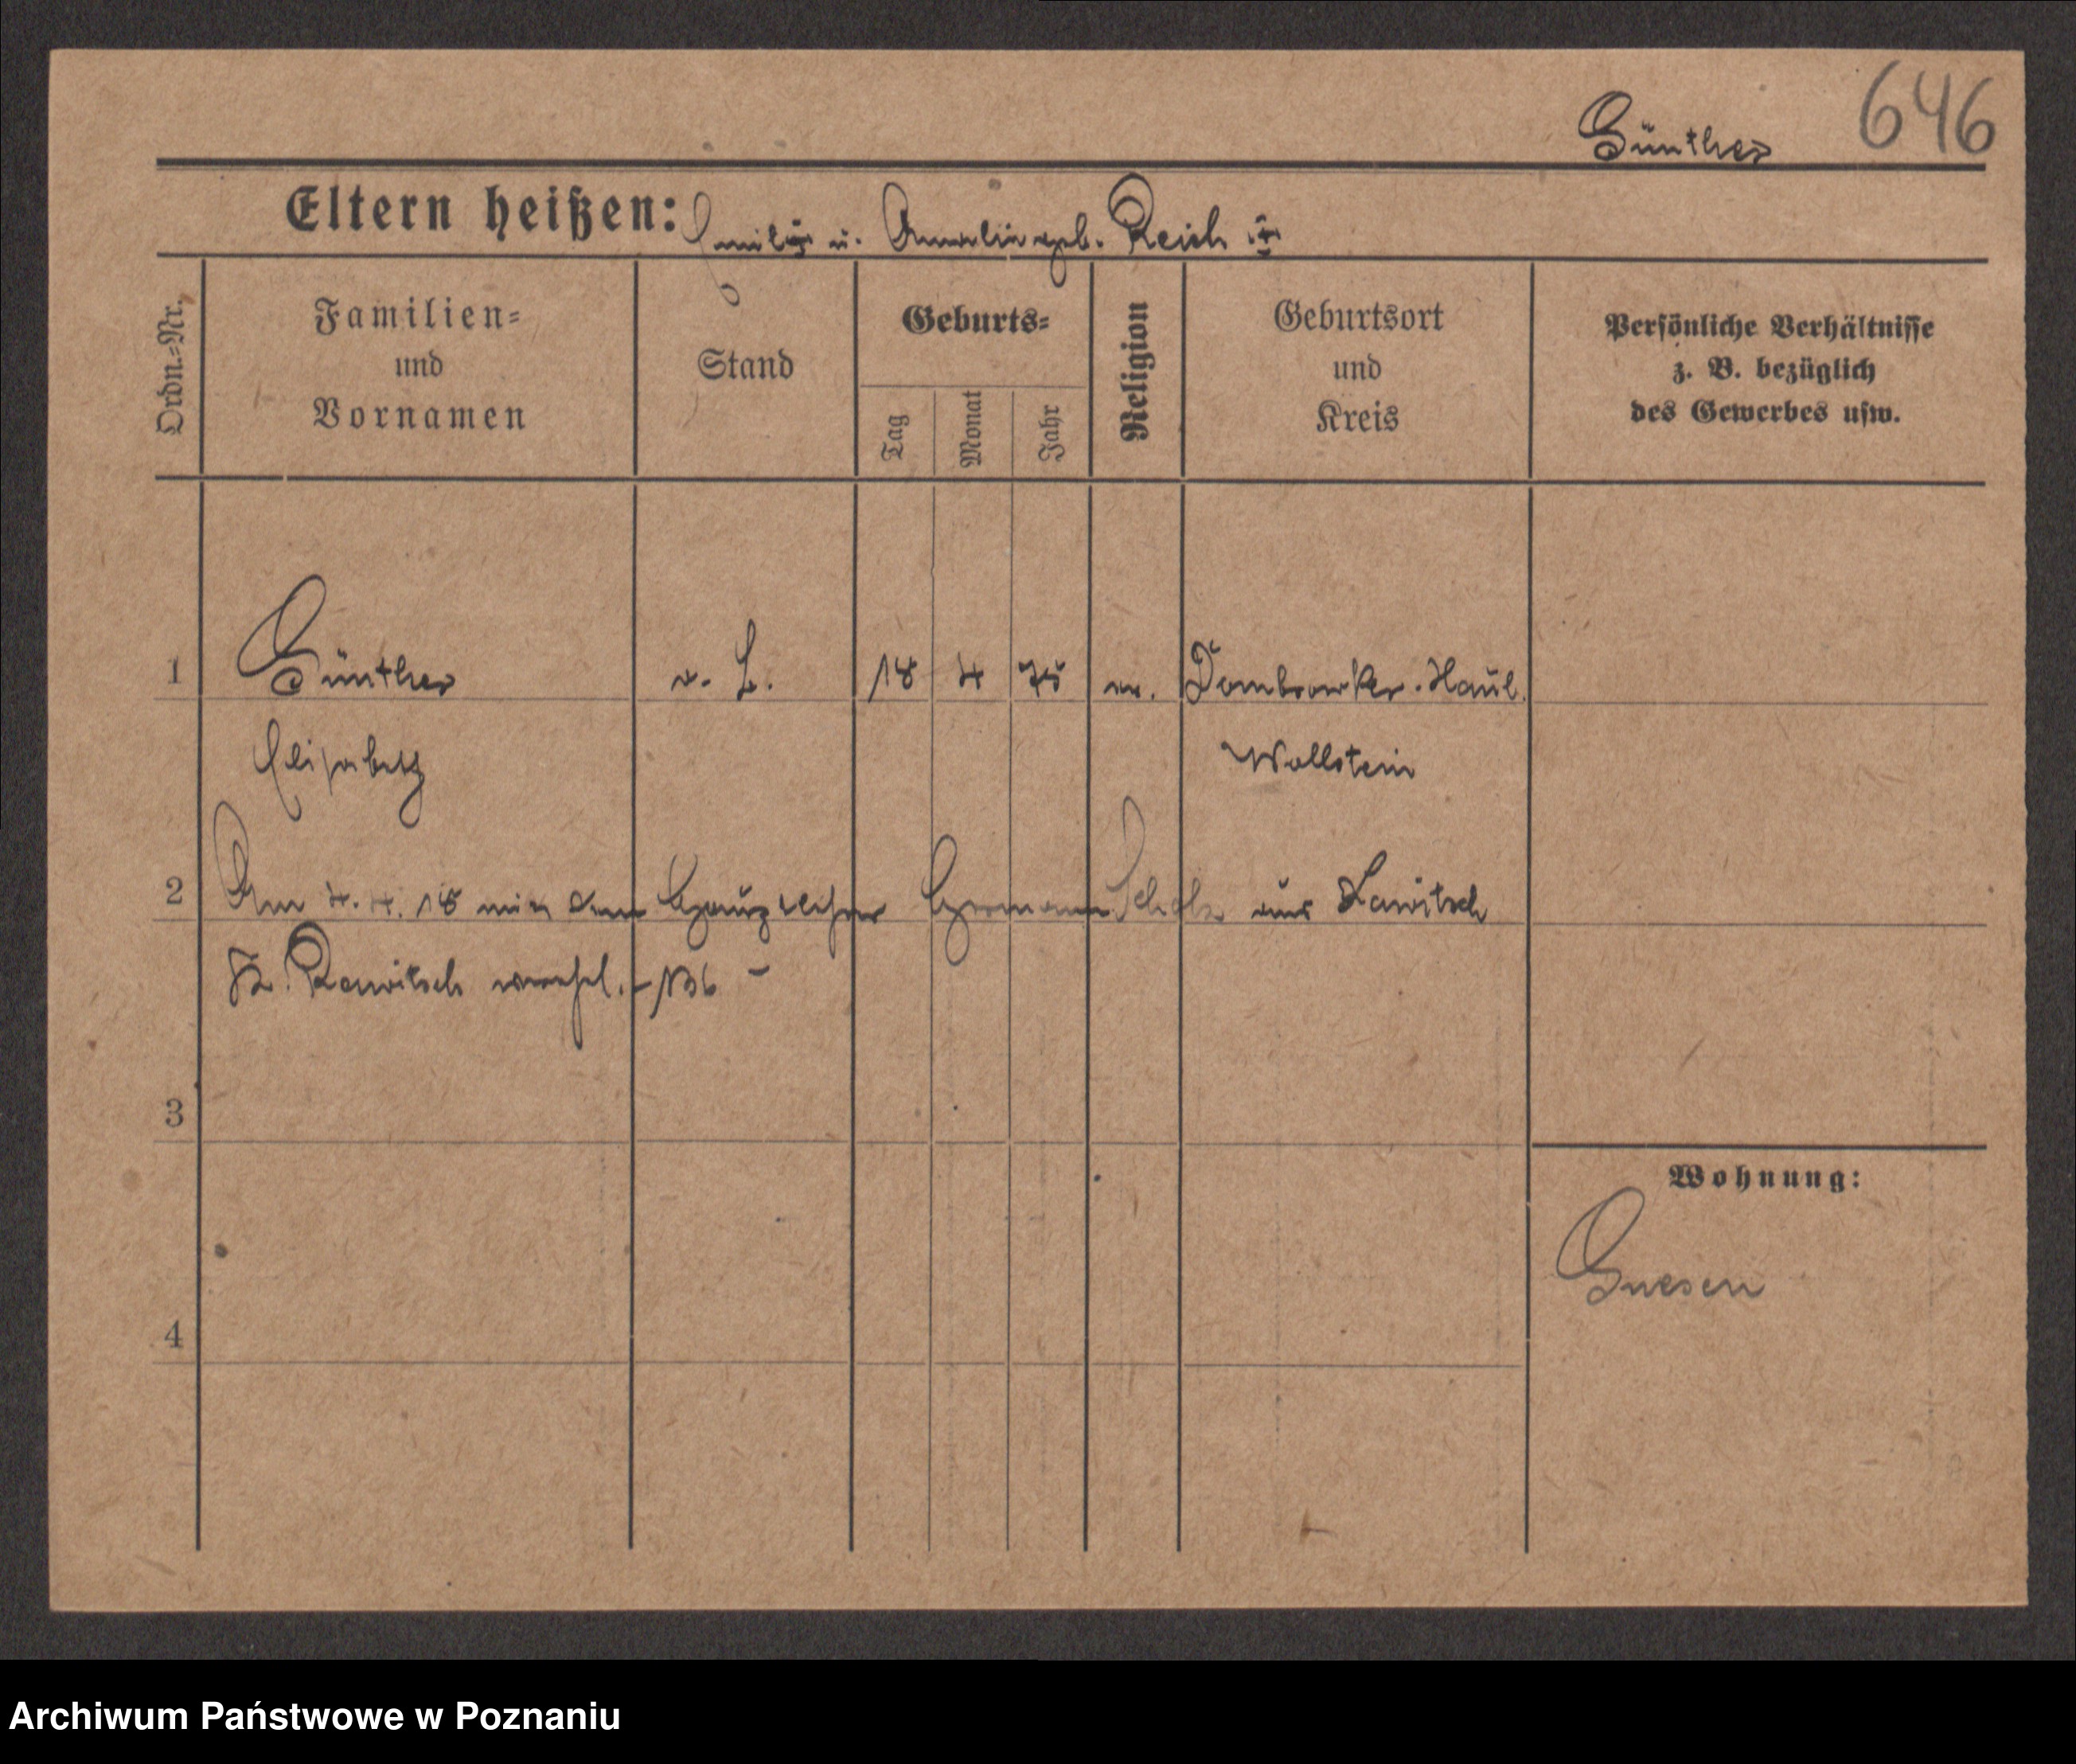 646
Günther
Eltern heißen: Emilie u. Amalie geb. Reich
Ordn.-Nr.
Familien-
und
Vornamen
Stand
Geburts-
Tag
Monat
Jahr
Religion
Geburtsort
und
Kreis
Persönliche Verhältnisse
z. B. bezüglich
des Gewerbes usw.
1 Günther 18 4 75 Dombrowker-Haul.
Elisabeth Wollstein
2 Am 4. 4. 18 mit dem Hermann Scholz aus Lawitsch
Kr. Rawitsch verehel.
3
Wohnung:
Gnesen
4
Archiwum Państwowe w Poznaniu